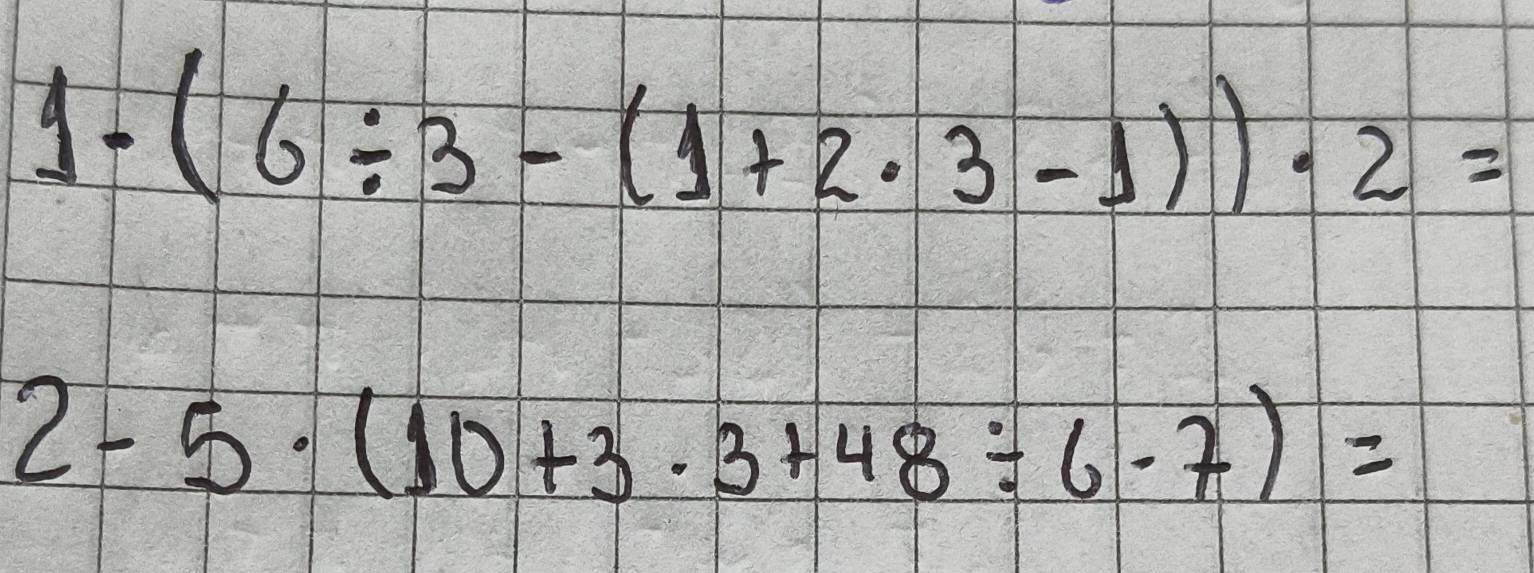 1 - ( 6 ÷ 3 - ( 1 + 2 · 3 - 1 ) ) · 2 =
2 - 5 · ( 10 + 3 · 3 + 48 ÷ 6 - 7 ) =